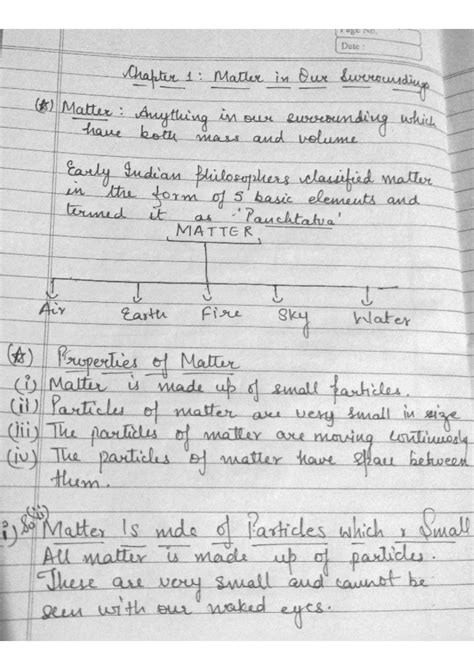 Page No.
Date :
Chapter 1 : Matter in Our Surroundings
(☆) Matter : Anything in our surrounding which
have both mass and volume
Early Indian Philosophers classified matter
in the form of 5 basic elements and
termed it as -'Panchtatva'
MATTER
Air Earth Fire Sky Water
(☆) Properties of Matter
(i) Matter is made up of small particles.
(ii) Particles of matter are very small in size
(iii) The particles of matter are moving continuously
(iv) The particles of matter have space between
them.
i) So (ii) Matter Is mde of Particles which r Small
All matter is made up of particles.
These are very small and cannot be
seen with our naked eyes.